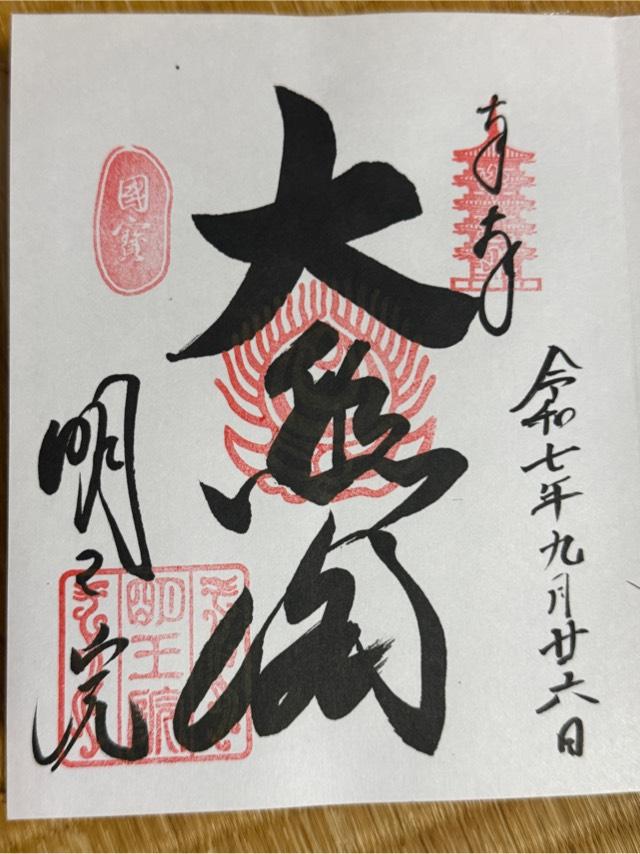 奉拝
令和七年九月廿六日
大悲閣
國寶
明王院
明王院